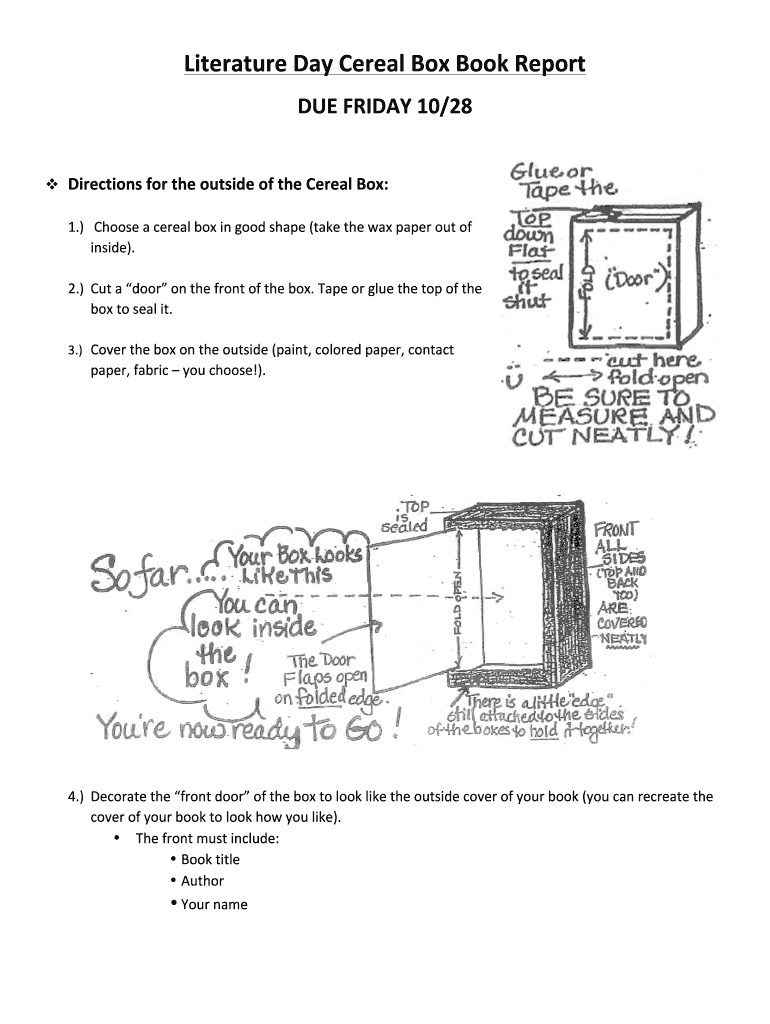 Literature Day Cereal Box Book Report
DUE FRIDAY 10/28
❖ Directions for the outside of the Cereal Box:
1.) Choose a cereal box in good shape (take the wax paper out of
inside).
2.) Cut a “door” on the front of the box. Tape or glue the top of the
box to seal it.
3.) Cover the box on the outside (paint, colored paper, contact
paper, fabric – you choose!).
Glue or
Tape the
TOP
down
Flat
to seal
it
shut
FOLD
("Door")
---- cut here
fold open
BE SURE TO
MEASURE AND
CUT NEATLY!
So far.....
Your Box Looks
Like This
You can
look inside
the
box!
TOP
is
sealed
FOLD OPEN
FRONT
ALL
SIDES
(TOP AND
BACK
TOO)
ARE
COVERED
NEATLY
The Door
Flaps open
on folded edge.
There is a little "edge"
still attached to the sides
of the boxes to hold it together!
You're now ready to Go!
4.) Decorate the “front door” of the box to look like the outside cover of your book (you can recreate the
cover of your book to look how you like).
• The front must include:
• Book title
• Author
• Your name